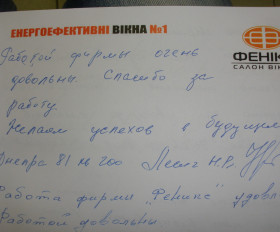 ЕНЕРГОЕФЕКТИВНІ ВІКНА №1
ФЕНІК
САЛОН ВІК
Работой фирмы очень
довольны. Спасибо за
работу.
Желаем успехов в будущем
Днепра 81 кв 200
Работа фирмы "Феникс" удовл
Работой довольны